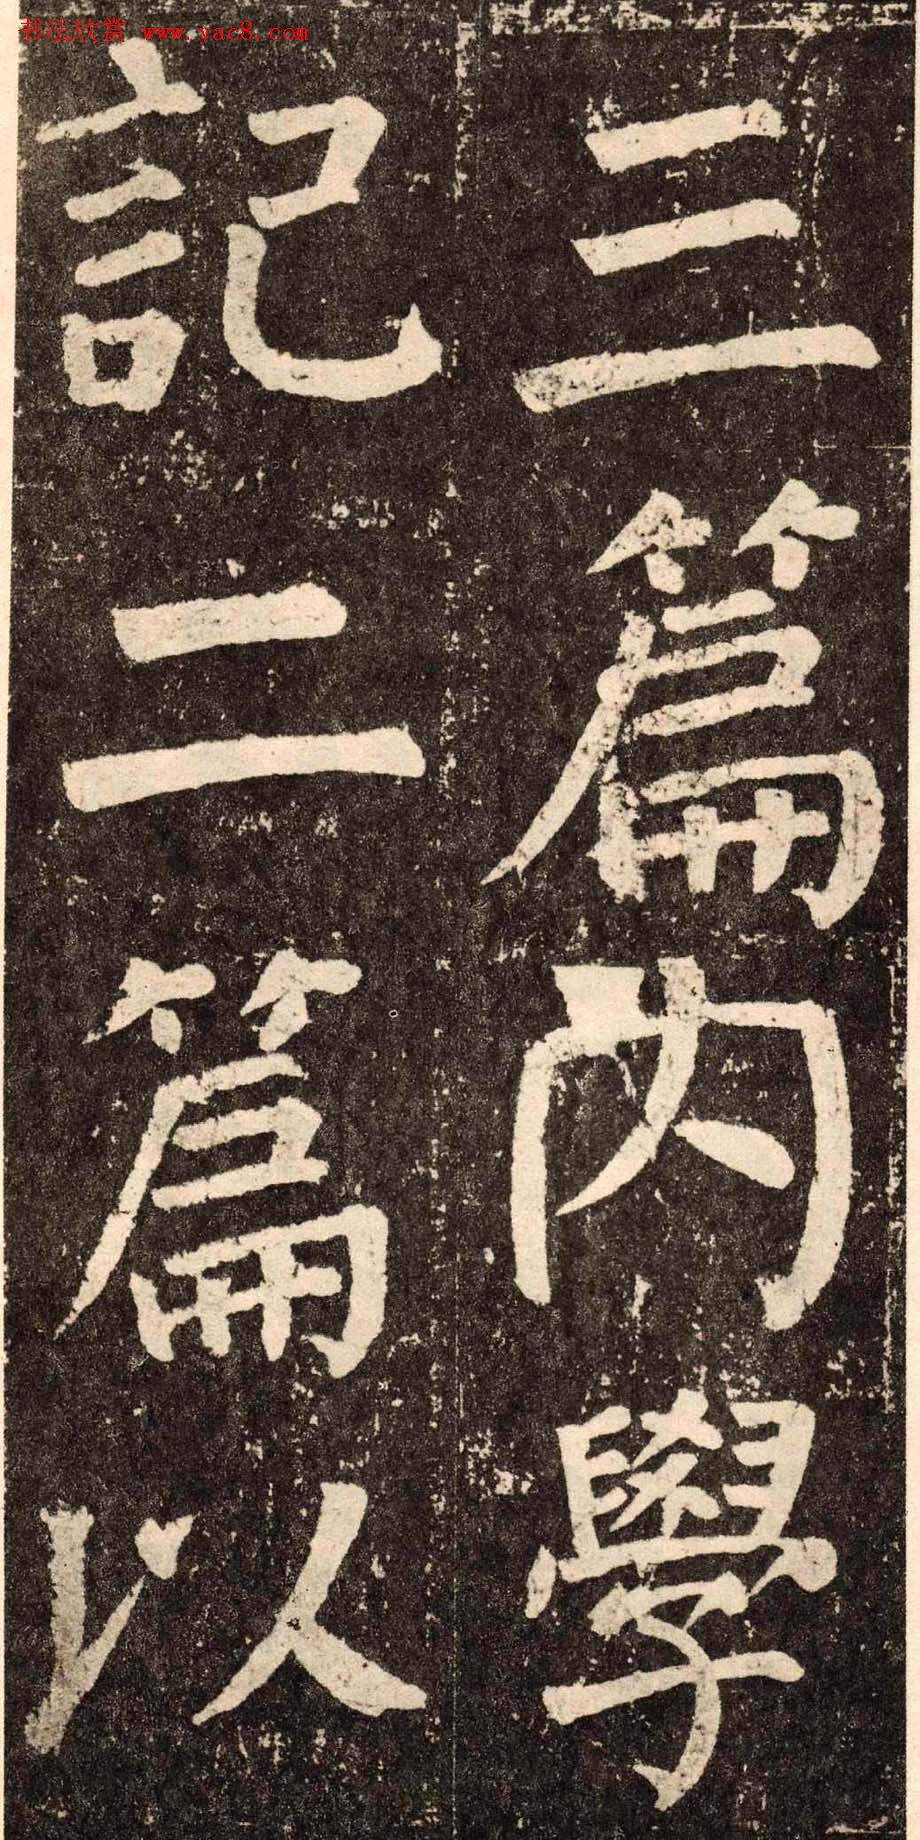 书法欣赏 www.yac8.com
三篇内學
記二篇以